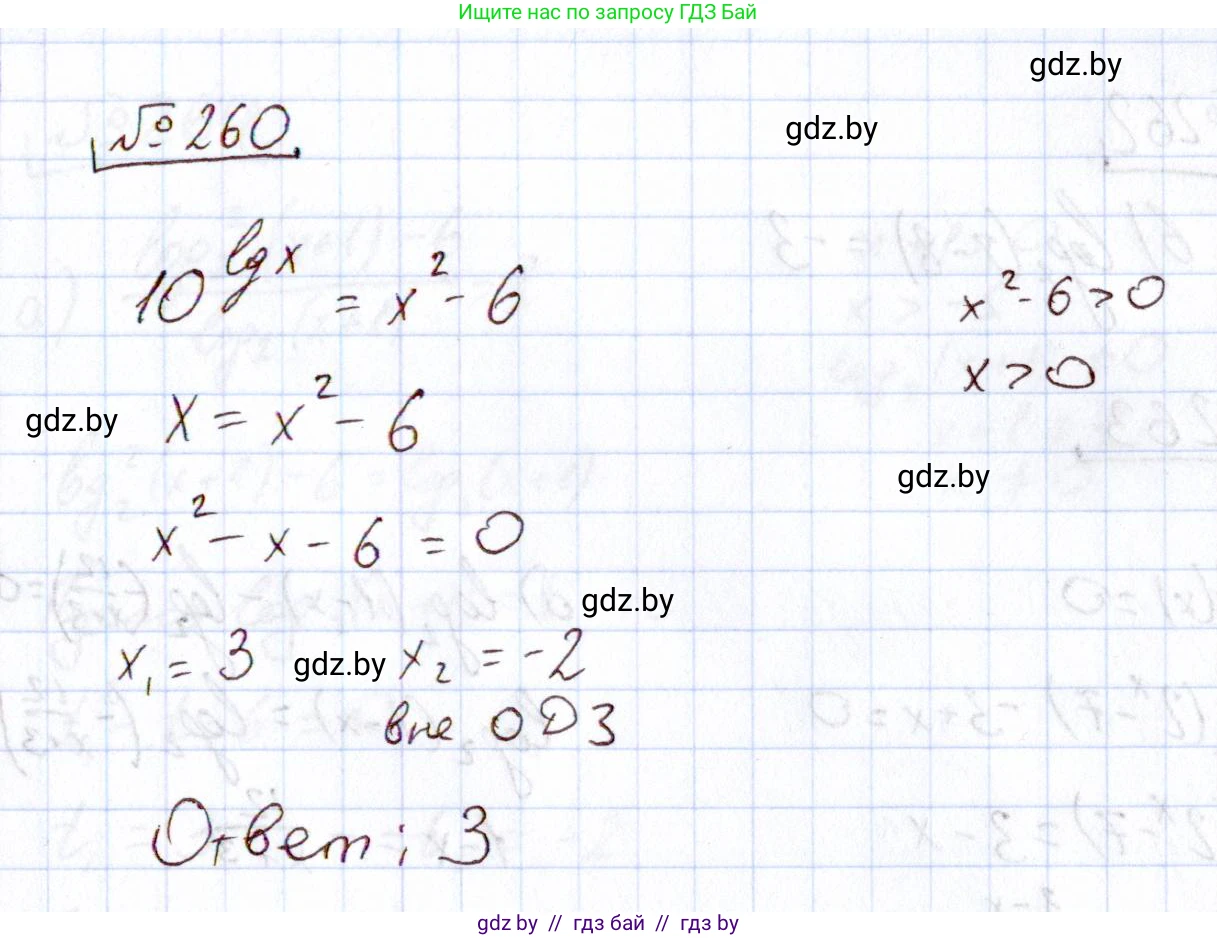 Ищите нас по запросу ГДЗ Бай
gdz.by
gdz.by
№ 260.
10^lg x = x² - 6
x² - 6 > 0
x > 0
gdz.by
x = x² - 6
gdz.by
x² - x - 6 = 0
gdz.by
x₁ = 3 gdz.by x₂ = -2
вне ОДЗ
Ответ: 3
gdz.by // гдз бай // гдз by